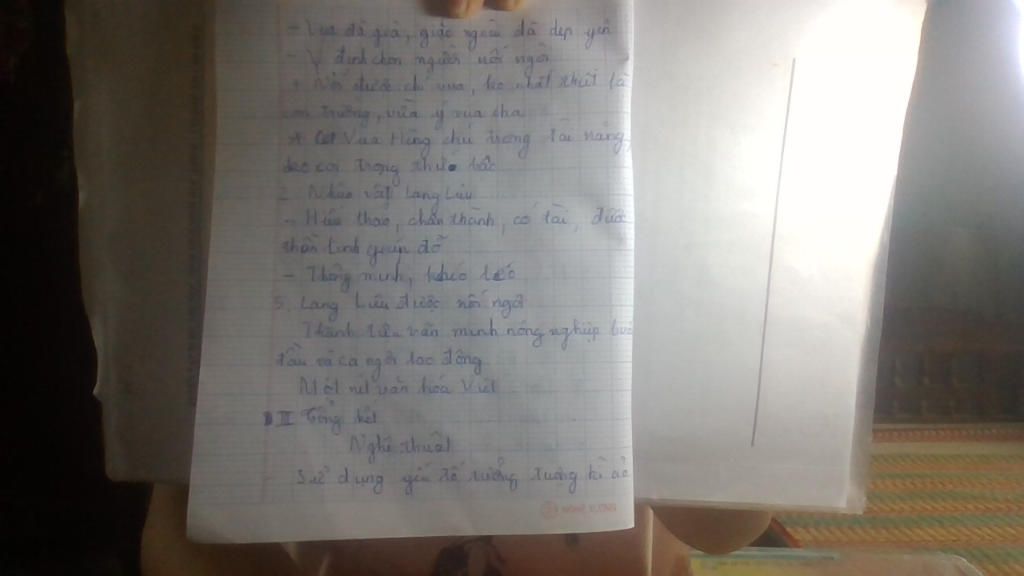 - Vua đã già, giặc ngoài đã dẹp yên
- Ý định chọn người nối ngôi
+ Nối được chí vua, ko nhất thiết là
con trưởng, vừa ý vua cha
* Vua Hùng chú trọng tài năng,
trọng thứ bậc
2. Nhân vật Lang Liêu
- Hiếu thảo, chân thành, có tài, được
thần linh giúp đỡ
- Thông minh, khéo léo
Lang Liêu được nối ngôi
Thành tựu văn minh nông nghiệp buổi
đầu và ca ngợi lao động
Một nét văn hóa Việt
III Tổng kết
Nghệ thuật
Sử dụng yếu tố tưởng tượng kì ảo
HỒNG